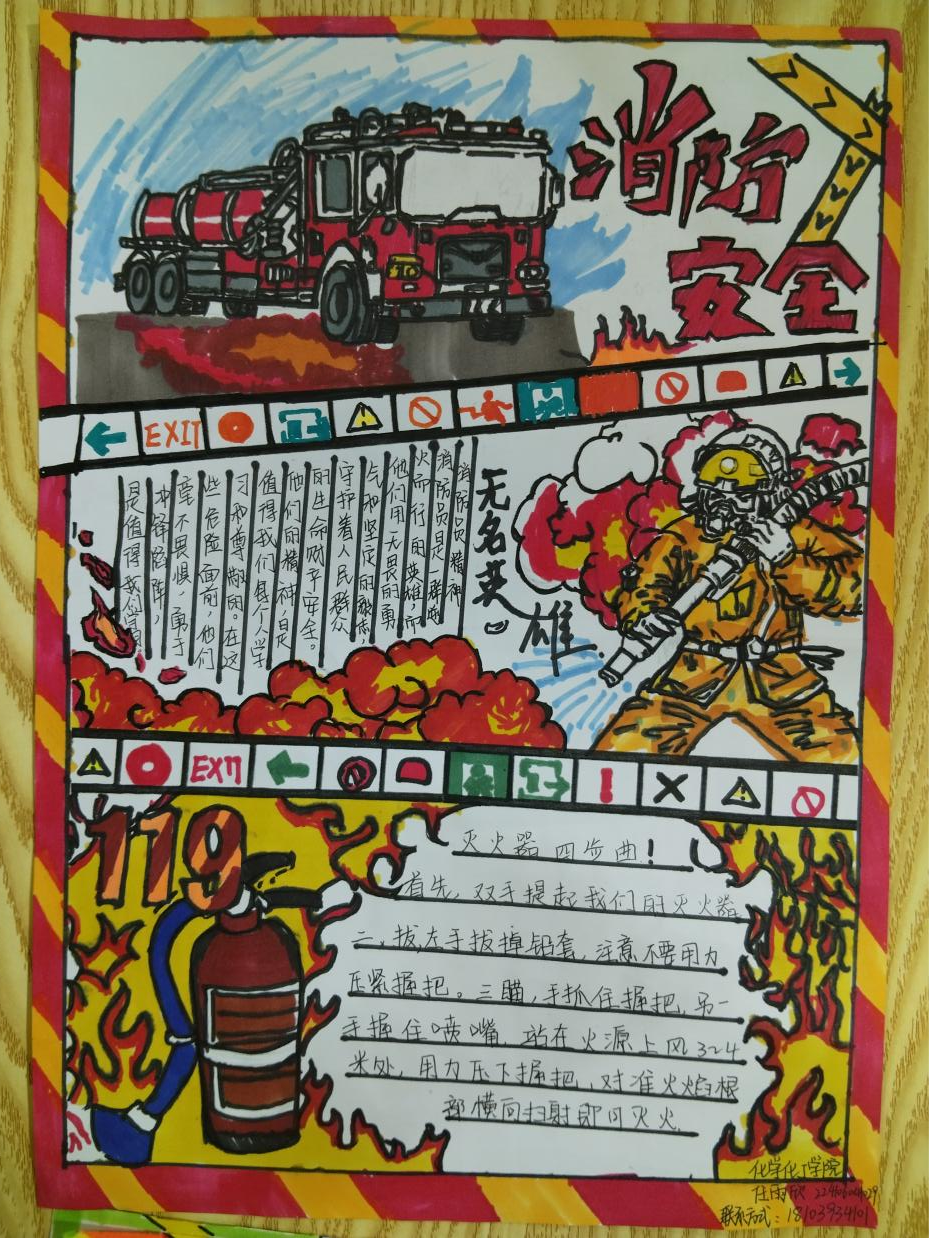 消防
安全
EXIT
无名英雄
消防员精神
消防员是一群
火而行的英雄,
他们用大畏的勇
气和坚定的
守护着人民群众
的生命财产安全。
他们的精神是
值得我们每个人学
习和尊敬的。在这
些危险面前,他们
毫不畏惧,勇于
冲锋陷阵,
是值得我们
EXIT
119
灭火器四步曲!
首先,双手提起我们的灭火器
二、拔,左手拔掉铅套,注意不要用力
压紧握把。三瞄,手抓住握把,另一
手握住喷嘴,站在火源上风3~4
米处,用力压下握把,对准火焰根
部横向扫射即可灭火.
化学化工学院
联系方式:18103934101